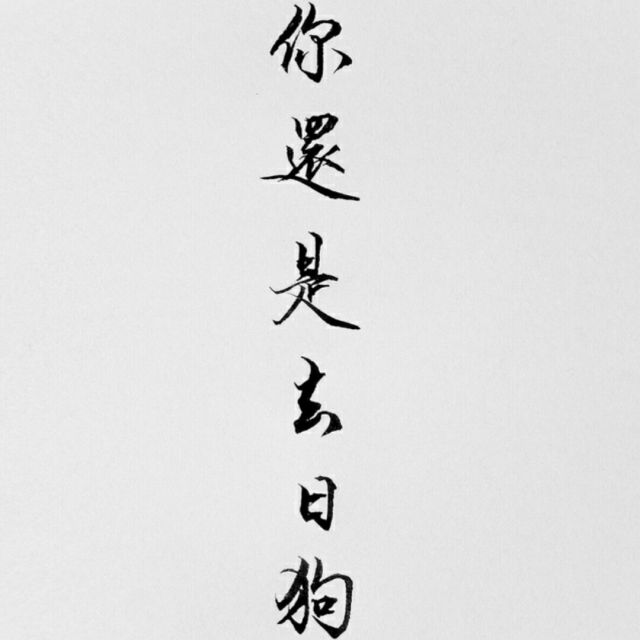 你還是去日狗